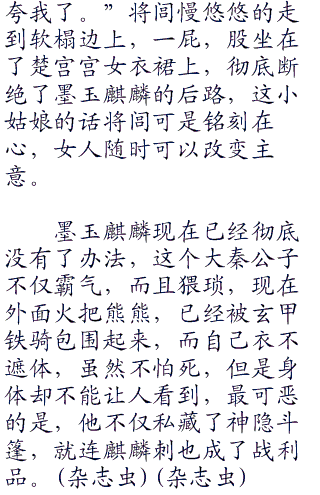 夸我了。”将闾慢悠悠的走
到软榻边上，一屁，股坐在
了楚宫宫女衣裙上，彻底断
绝了墨玉麒麟的后路，这小
姑娘的话将闾可是铭刻在
心，女人随时可以改变主
意。
墨玉麒麟现在已经彻底
没有了办法，这个大秦公子
不仅霸气，而且猥琐，现在
外面火把熊熊，已经被玄甲
铁骑包围起来，而自己衣不
遮体，虽然不怕死，但是身
体却不能让人看到，最可恶
的是，他不仅私藏了神隐斗
篷，就连麒麟刺也成了战利
品。(杂志虫)(杂志虫)